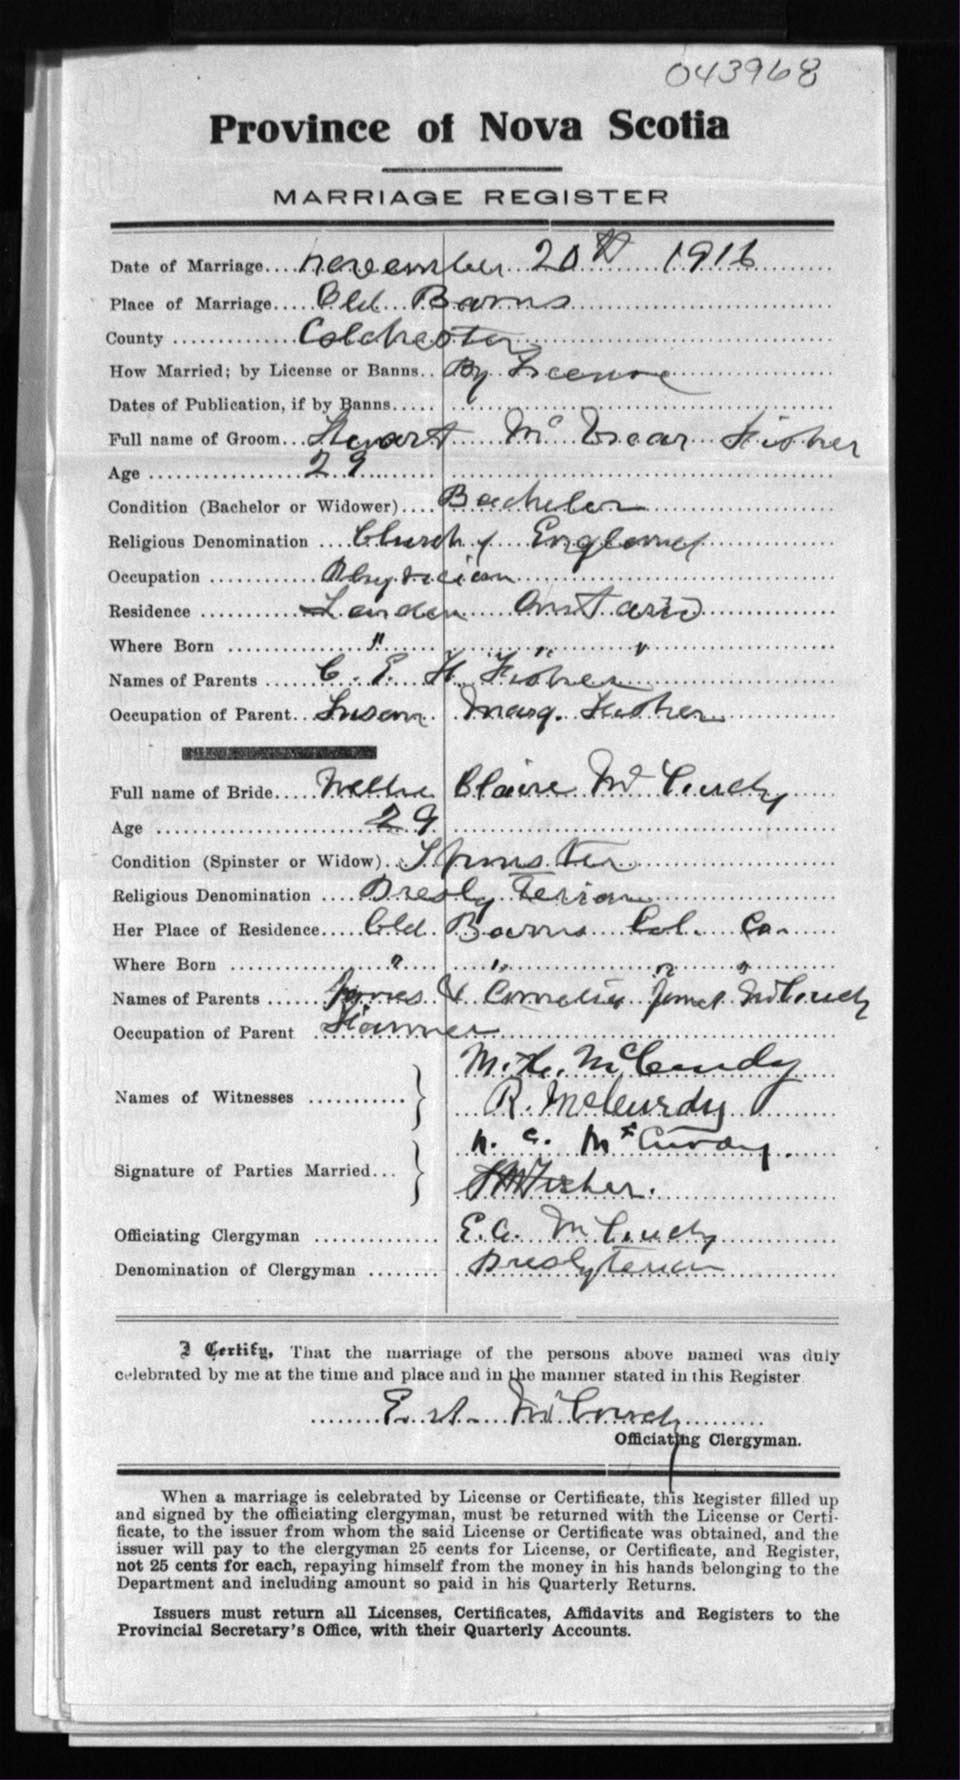 043968
Province of Nova Scotia
MARRIAGE REGISTER
Date of Marriage....November 20th 1916
Place of Marriage.....Old Barns
County .............Colchester
How Married; by License or Banns..By License
Dates of Publication, if by Banns.....
Full name of Groom...Stewart Mc Fisher
Age ..................29
Condition (Bachelor or Widower)....Bachelor
Religious Denomination ....Church of England
Occupation ...........Physician
Residence ............London Ontario
Where Born ................" " "
Names of Parents ......C. E. H Fisher
Occupation of Parent..Susan Marg. Fisher
Full name of Bride.....Nellie Blaire McCurdy
Age .......................29
Condition (Spinster or Widow)..Spinster
Religious Denomination ....Presbyterian
Her Place of Residence.....Old Barns Col. Co.
Where Born ..................." " " "
Names of Parents ......James & Cornelia Janet McCurdy
Occupation of Parent ..Farmer
M. H. McCurdy
Names of Witnesses ...........
R. McCurdy
N. C. McCurdy.
Signature of Parties Married...
S M Fisher.
Officiating Clergyman ..............E.A. McCurdy
Denomination of Clergyman ........Presbyterian
I Certify, That the marriage of the persons above named was duly
celebrated by me at the time and place and in the manner stated in this Register
E. A. McCurdy
Officiating Clergyman.
When a marriage is celebrated by License or Certificate, this Register filled up
and signed by the officiating clergyman, must be returned with the License or Certi-
ficate, to the issuer from whom the said License or Certificate was obtained, and the
issuer will pay to the clergyman 25 cents for License, or Certificate, and Register,
not 25 cents for each, repaying himself from the money in his hands belonging to the
Department and including amount so paid in his Quarterly Returns.
Issuers must return all Licenses, Certificates, Affidavits and Registers to the
Provincial Secretary's Office, with their Quarterly Accounts.